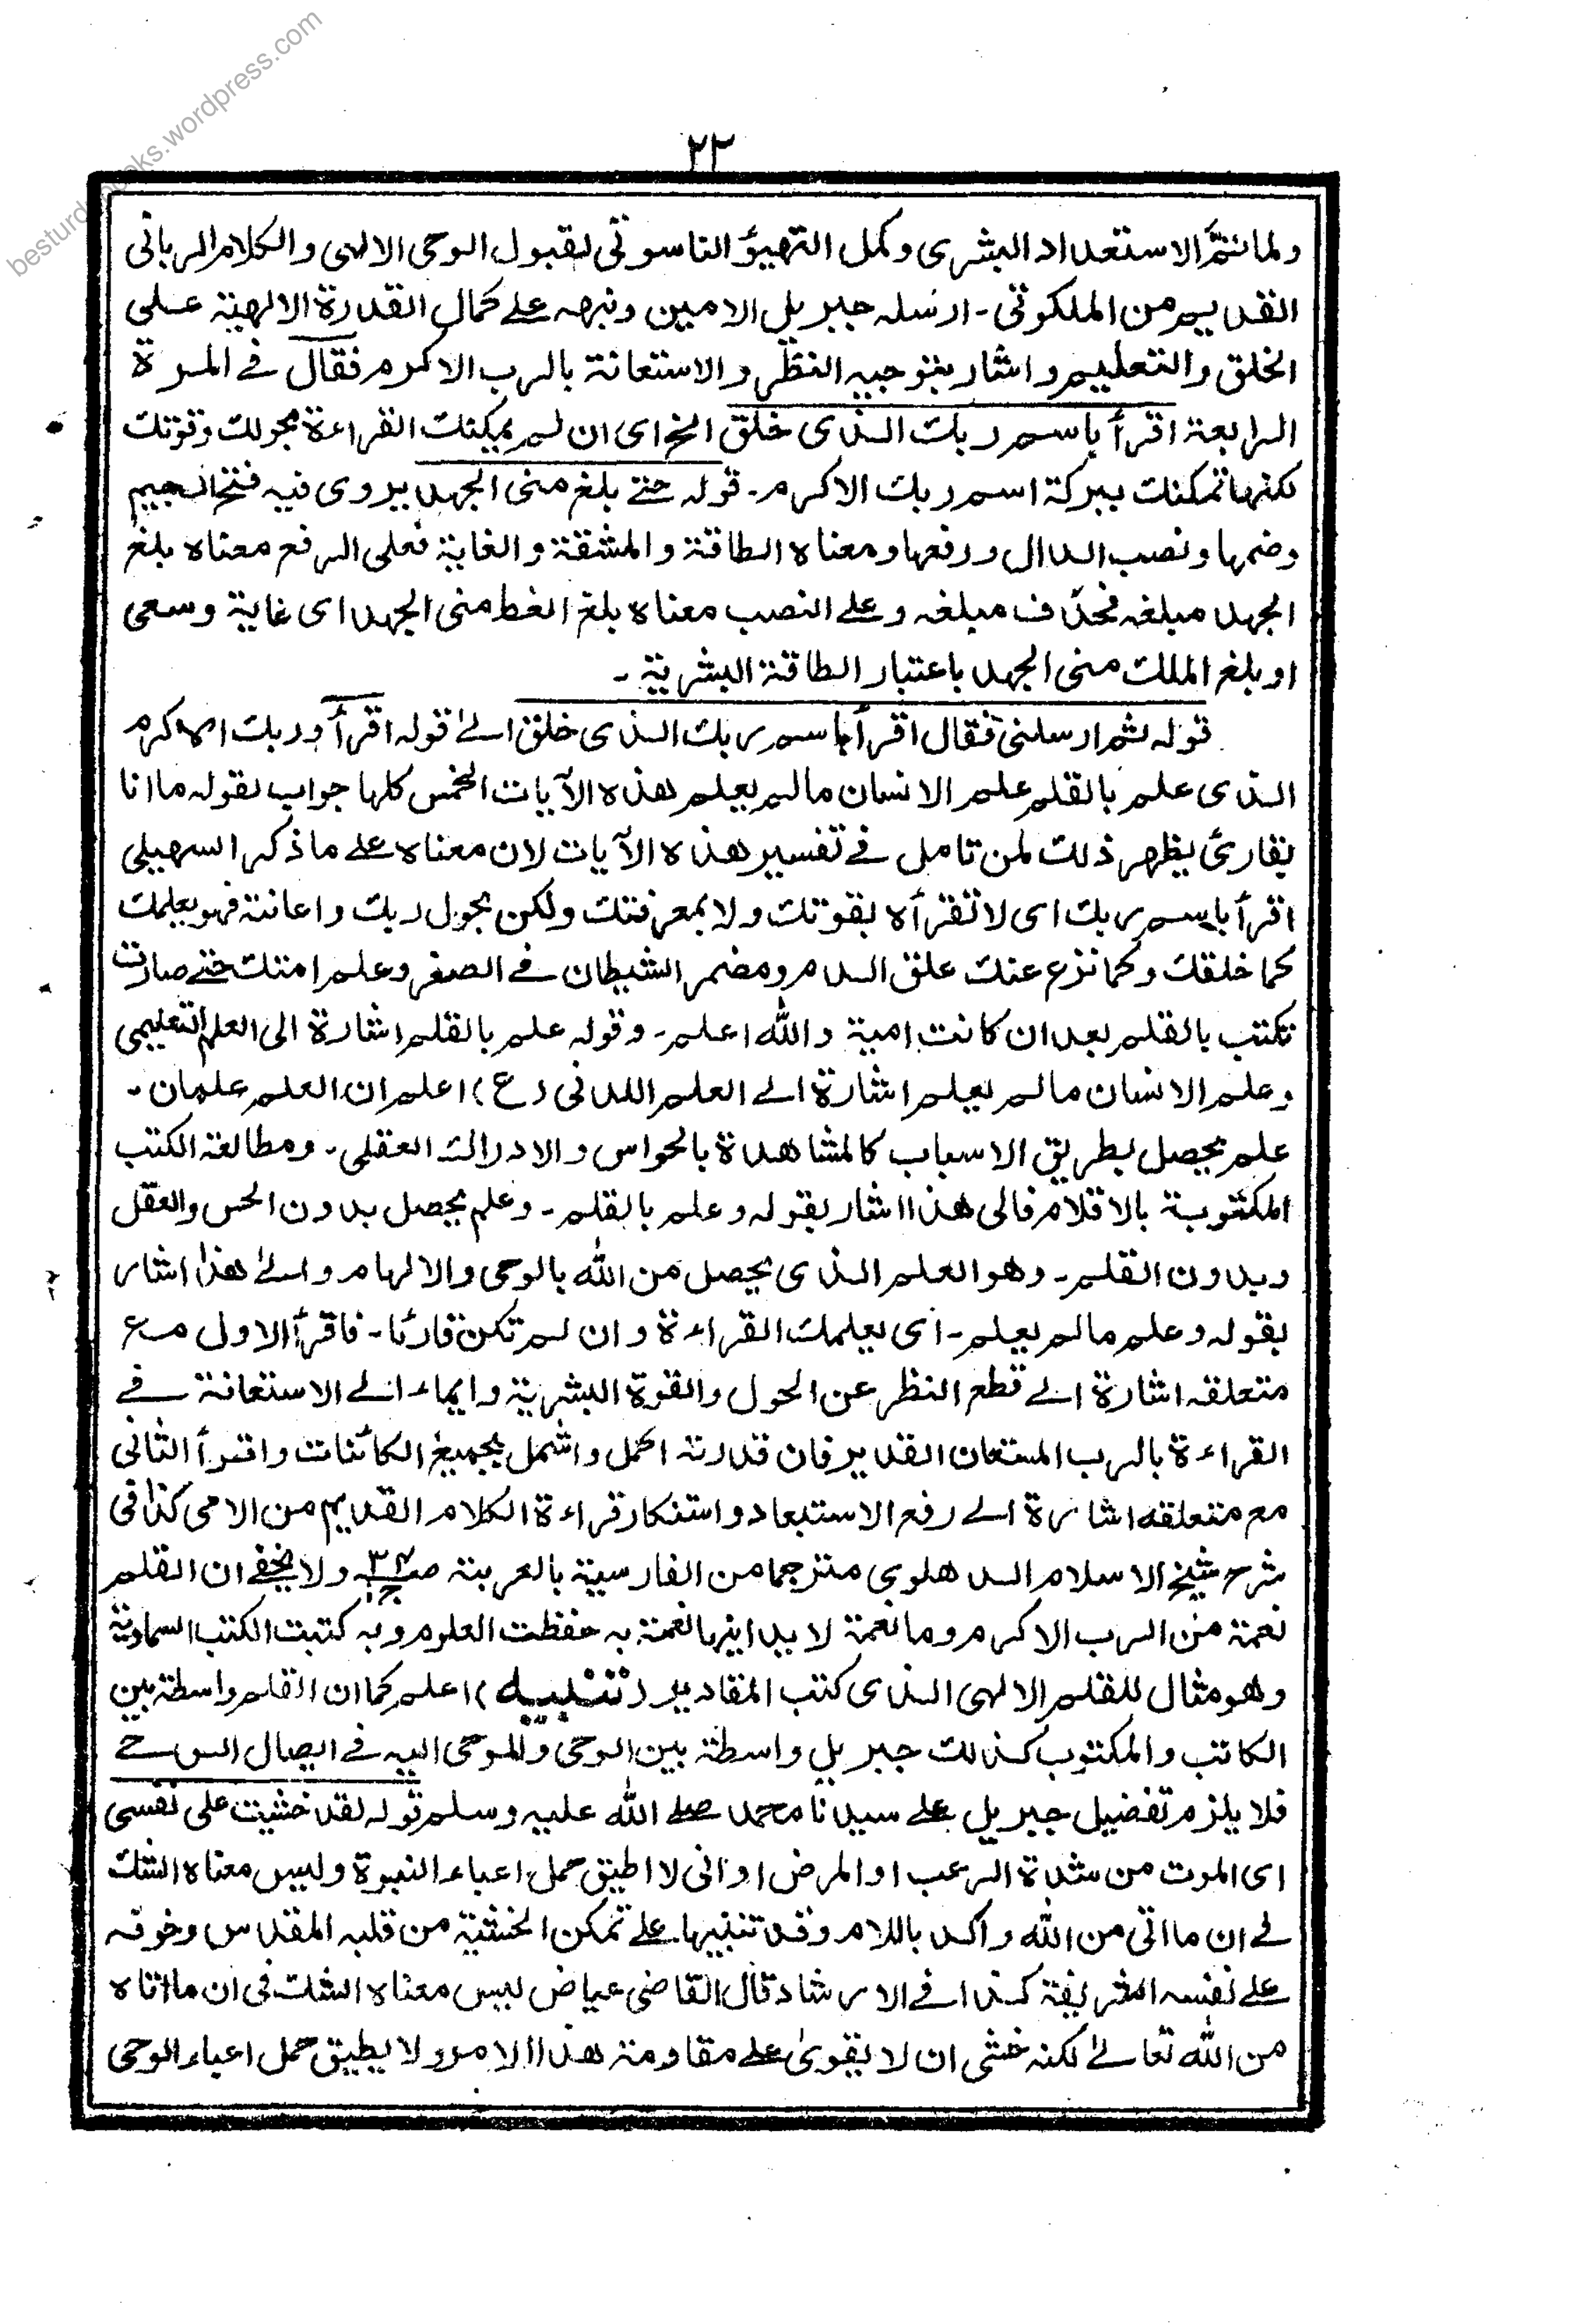 besturdubooks.wordpress.com
٢٣
ولما تم الاستعداد البشرى وكمل التهيؤ الناسوتى لقبول الوحى الالهى والكلام الربانى
القديم من الملكوتى - ارسله جبريل الامين ونبهه على كمال القدرة الالهية على
الخلق والتعليم واشار بتوجيه النظر والاستعانة بالرب الاكرم فقال فى المرة
الرابعة اقرأ باسم ربك الذى خلق الخ اى ان لم يمكنك القراءة بحولك وقوتك
لكنها تمكنك ببركة اسم ربك الاكرم - قوله حتى بلغ منى الجهد يروى فيه فتح الجيم
وضمها ونصب الدال ورفعها ومعناه الطاقة والمشقة والغاية فعلى الرفع معناه بلغ
الجهد مبلغه فحذف مبلغه وعلى النصب معناه بلغ الغط منى الجهد اى غاية وسعى
او بلغ الملك منى الجهد باعتبار الطاقة البشرية -
قوله ثم ارسلنى فقال اقرأ باسم ربك الذى خلق الى قوله اقرأ وربك الاكرم
الذى علم بالقلم علم الانسان مالم يعلم هذه الآيات الخمس كلها جواب لقوله ما انا
بقارئ يظهر ذلك لمن تامل فى تفسير هذه الآيات لان معناه على ما ذكر السهيلى
اقرأ باسم ربك اى لا تقرأه بقوتك ولا بمعرفتك ولكن بحول ربك واعانته فهو يعلمك
كما خلقك وكما نزع عنك علق الدم ومضمر الشيطان فى الصغر وعلم امتك حتى صارت
تكتب بالقلم بعد ان كانت امية والله اعلم - وقوله علم بالقلم اشارة الى العلم التعليمى
وعلم الانسان مالم يعلم اشارة الى العلم اللدنى (ع) اعلم ان العلم علمان -
علم يحصل بطريق الاسباب كالمشاهدة بالحواس والادراك العقلى - ومطالعة الكتب
المكتوبة بالاقلام فالى هذا اشار بقوله وعلم بالقلم - وعلم يحصل بدون الحس والعقل
وبدون القلم - وهو العلم الذى يحصل من الله بالوحى والالهام والى هذا اشار
بقوله وعلم مالم يعلم - اى يعلمك القراءة وان لم تكن قارئا - فاقرأ الاول مع
متعلقه اشارة الى قطع النظر عن الحول والقوة البشرية وايماء الى الاستعانة فى
القراءة بالرب المستعان القدير فان قدرته اكمل واشمل بجميع الكائنات واقرأ الثانى
مع متعلقه اشارة الى رفع الاستبعاد واستنكار قراءة الكلام القديم من الامى كذا فى
شرح شيخ الاسلام الدهلوى مترجما من الفارسية بالعربية صـ٣٤ ج١ ولا يخفى ان القلم
نعمة من الرب الاكرم وما نعمة لا يدانيها نعمة به حفظت العلوم وبه كتبت الكتب السماوية
وهو مثال للقلم الالهى الذى كتب المقادير (تنبيه) اعلم كما ان القلم واسطة بين
الكاتب والمكتوب كذلك جبريل واسطة بين الوحى والموحى اليه فى ايصال الوحى
فلا يلزم تفضيل جبريل على سيدنا محمد صلى الله عليه وسلم قوله لقد خشيت على نفسى
اى الموت من شدة الرعب او المرض او انى لا اطيق حمل اعباء النبوة وليس معناه الشك
فى ان ما اتى من الله واكد باللام وقد تنبيها على تمكن الخشية من قلبه المقدس وخوفه
على نفسه الشريفة كذا فى الارشاد قال القاضى عياض ليس معناه الشك فى ان ما اتاه
من الله تعالى لكنه خشى ان لا يقوى على مقاومة هذا الامر ولا يطيق حمل اعباء الوحى